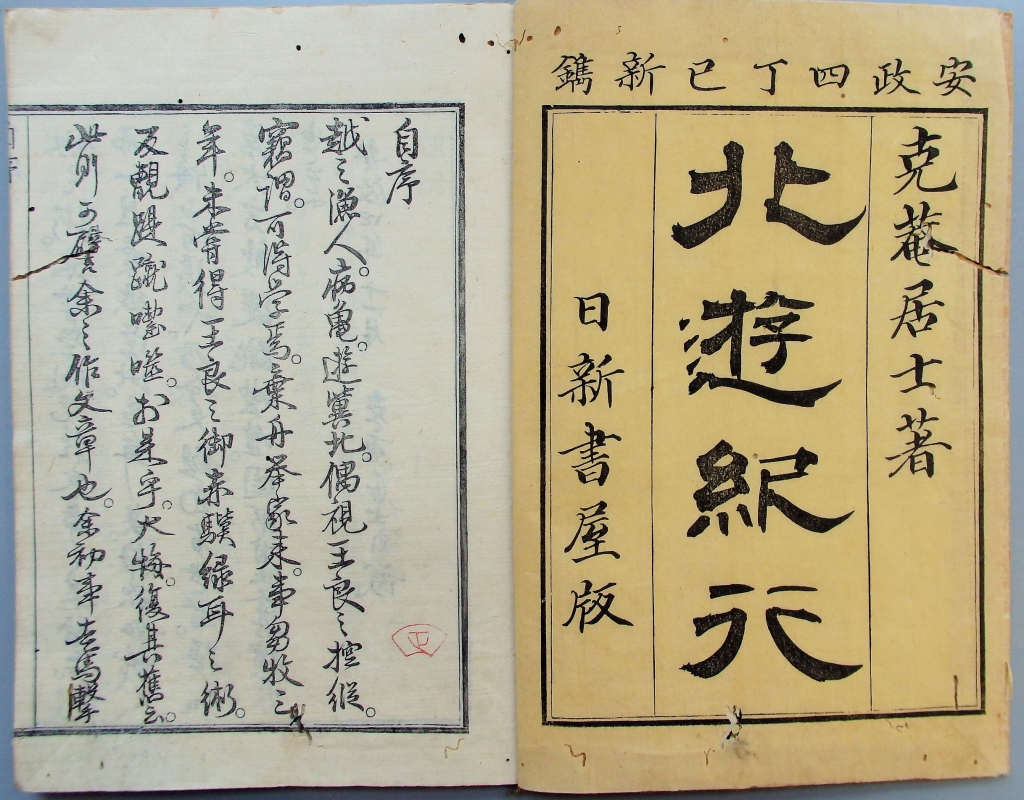 安政四丁巳新鐫
克菴居士著
北遊紀行
日新書屋版
自序
越之漁人。病亀。遊冀北。偶視王良之控縦。
竊謂。可得学焉。棄舟挙家来。事芻牧三
年。未嘗得王良之御赤驥緑耳之術。
反覩踶蹴囓噬。於是乎。大悔。復其舊云。
此則可譬余之作文章也。余初事走馬擊
正